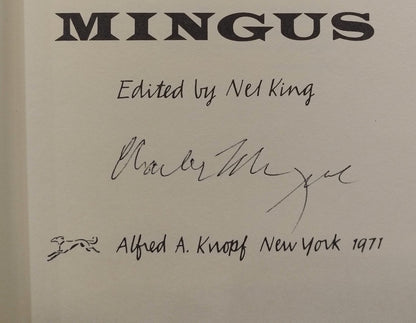 MINGUS
Edited by Nel King
Charles Mingus
Alfred A. Knopf New York 1971